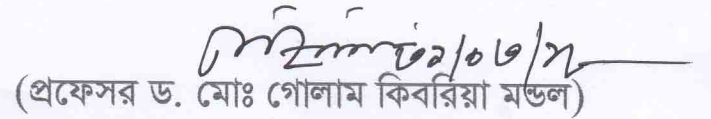 (প্রফেসর ড. মোঃ গোলাম কিবরিয়া মন্ডল)